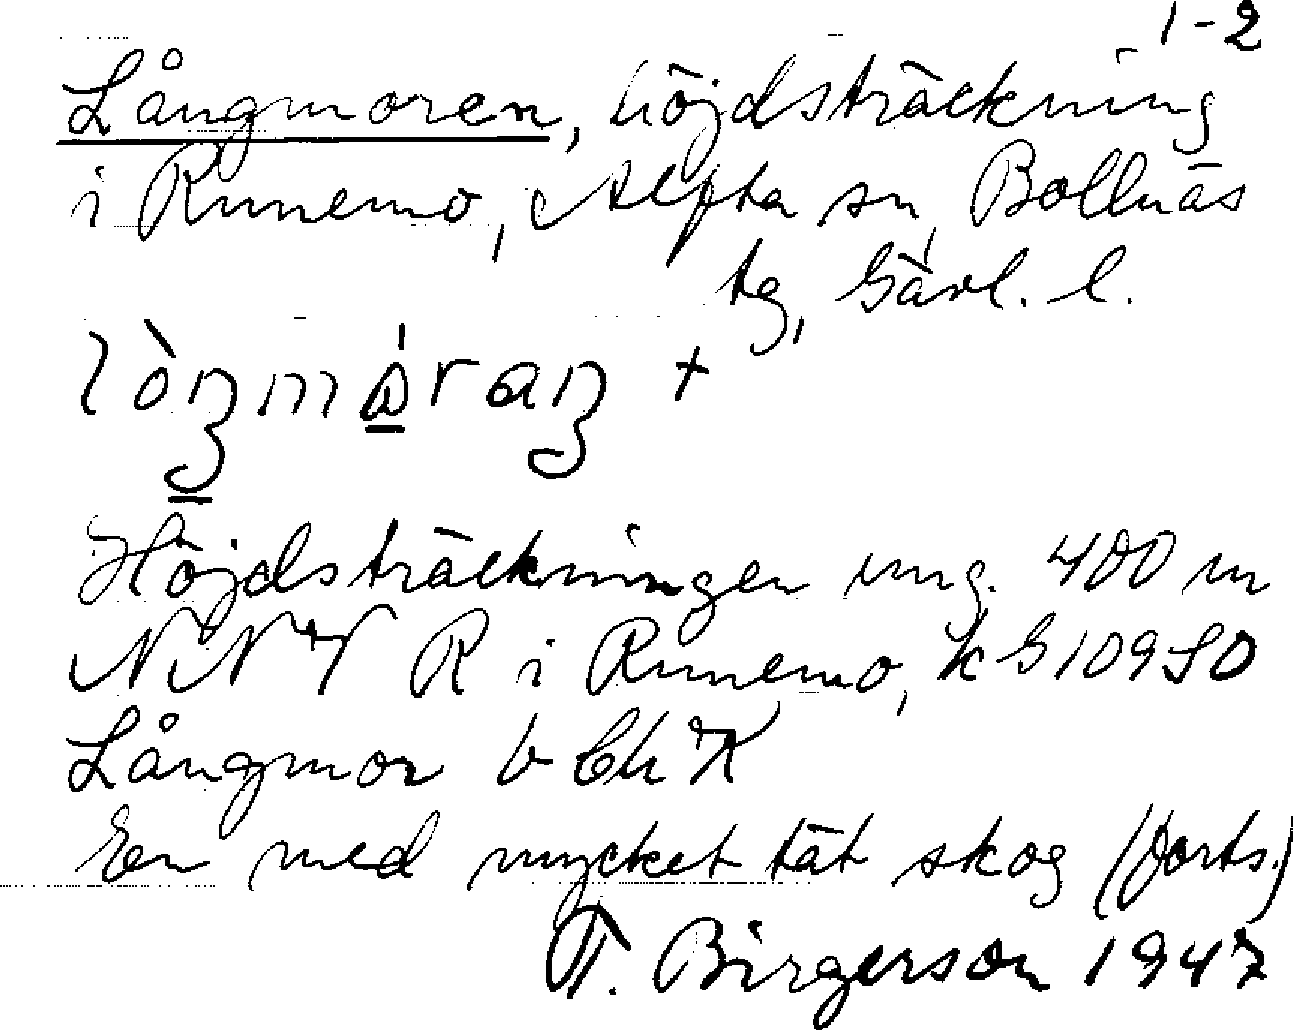 1-2
Långmoren, höjdsträckning
i Runemo, Alfta sn, Bollnäs
tg, Gävl. l.
Höjdsträckningen ung. 400 m
NNV R i Runemo, k G 109 SO
Långmor b Ch K
En med mycket tät skog (forts.)
T. Birgerson 1947